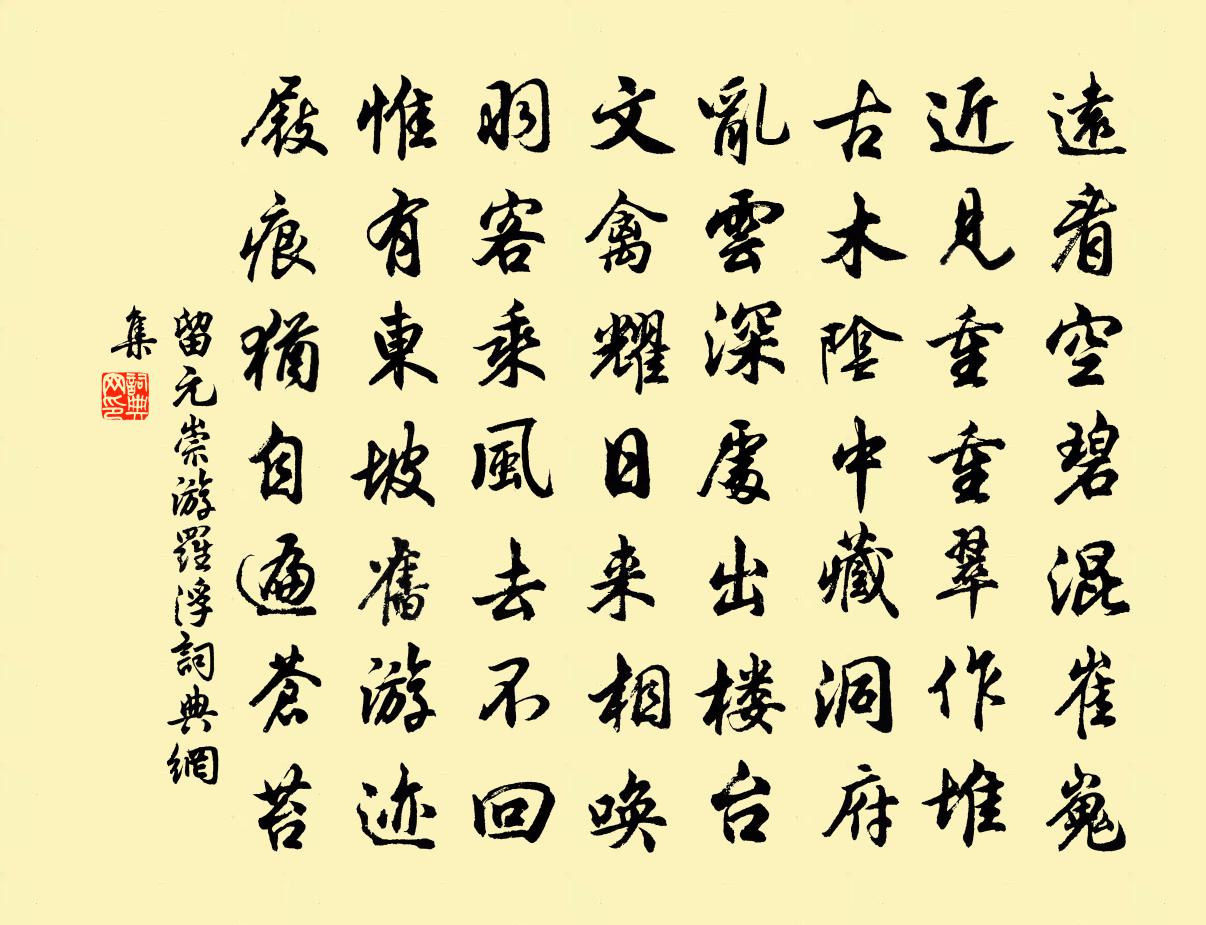 遠看空碧混崔嵬
近見重重翠作堆
古木陰中藏洞府
亂雲深處出楼台
文禽耀日来相喚
羽客乘風去不回
惟有東坡舊游迹
屐痕猶自遍蒼苔
留元崇游羅浮詞典網
集
詞典
网印